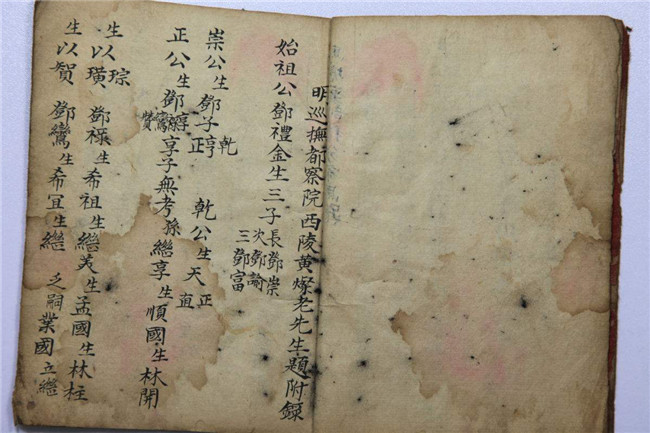 明巡撫都察院西陵黃燦老先生題附錄
始祖公鄧禮金生三子
長鄧崇
次鄧諭
三鄧富
崇公生鄧子
乾
亨
正
乾公生天
正
直
正公生鄧
鸞
贊
享子無考孫繼享生順國生林開
生以
琮
璜
鄧祿生希祖生繼美生孟國生林柱
生以賀
鄧鸞生希宜生繼
乏嗣業國立繼